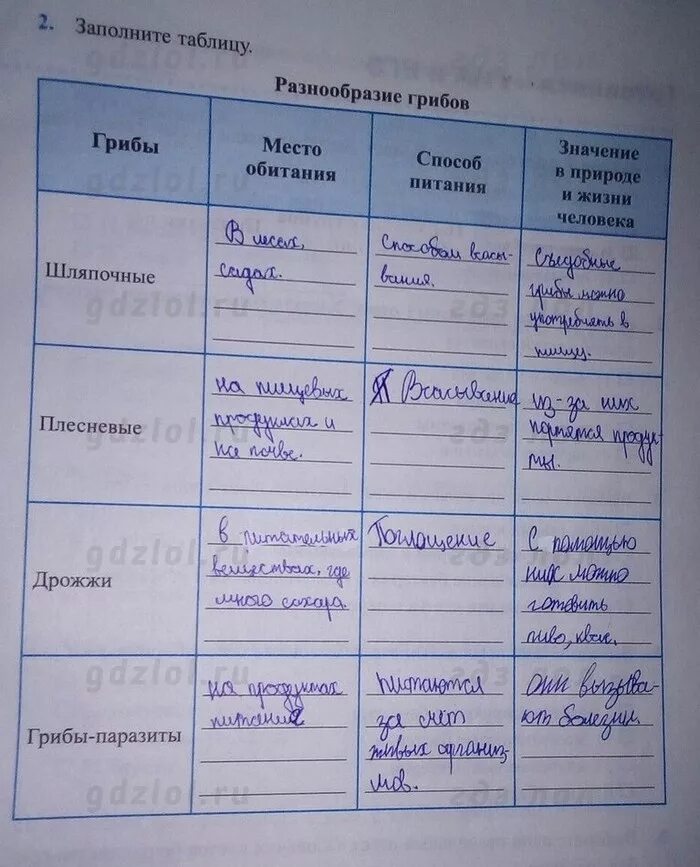 2. Заполните таблицу.
Разнообразие грибов
Грибы
Место
обитания
Способ
питания
Значение
в природе
и жизни
человека
Шляпочные
В лесах,
садах.
Способом всасы-
вания.
Съедобные
грибы можно
употреблять в
пищу.
Плесневые
на пищевых
продуктах и
на почве.
Всасывание
из-за них
портятся продук-
ты.
Дрожжи
в питательных
веществах, где
много сахара.
Поглощение
С помощью
них можно
готовить
пиво, квас.
Грибы-паразиты
на продуктах
питания
питаются
за счёт
живых организ-
мов.
они вызыва-
ют болезни.
gdzlol.ru
gdzlol.ru
gdzlol.ru
gdzlol.ru
gdzlol.ru
gdzlol.ru
gdzlol.ru